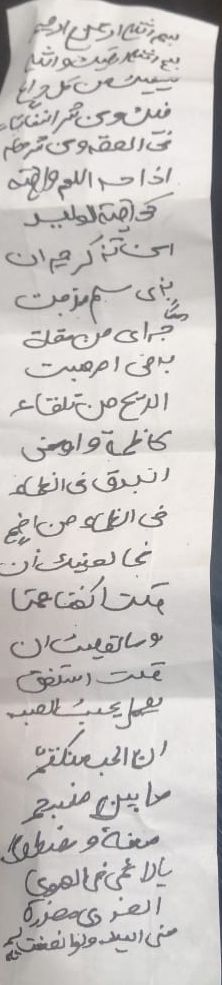 بسم الله الرحمن الرحيم
بسم الله ارقيك والله
يشفيك من كل داء
فيك ومن شر النفاثات
في العقد ومن شر حاسد
اذا حسد اللهم واقية
كواقية الوليد
امن تذكر جيران
بذي سلم مزجت
دمعا
جرى من مقلة
بدم ام هبت
الريح من تلقاء
كاظمة واومض
البرق في الظلماء
في الظلماء من اضم
فما لعينيك ان
قلت اكففا همتا
وما لقلبك ان
قلت استفق
يهم ايحسب الصب
ان الحب منكتم
ما بين منسجم
منه ومضطرم
يا لائمي في الهوى
العذري معذرة
مني اليك ولو انصفت لم